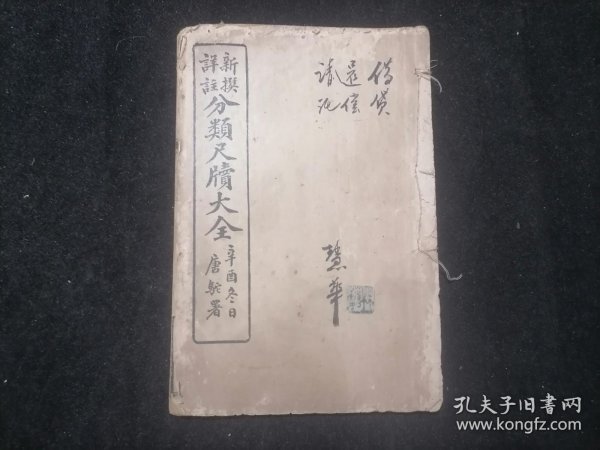 新撰
詳註
分類尺牘大全
辛酉冬日
唐駝署
借貸
還償
請託
慧華
孔夫子旧书网
www.kongfz.com